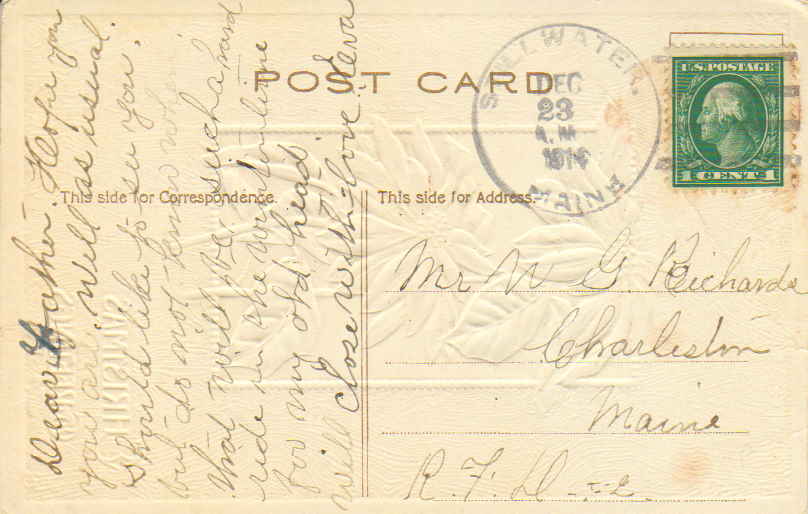 POST CARD
STILLWATER,
DEC
23
A.M.
1914
MAINE
U.S. POSTAGE
1 CENT 1
This side for Correspondence.
This side for Address.
Dear Father. Hope you
you are well as usual.
Should like to see you.
but do not know when
that will be. such a hard
ride in the wintertime
for my old head
will close with love Neva
Mr W G. Richards
Charleston
Maine
R. F. D - 2